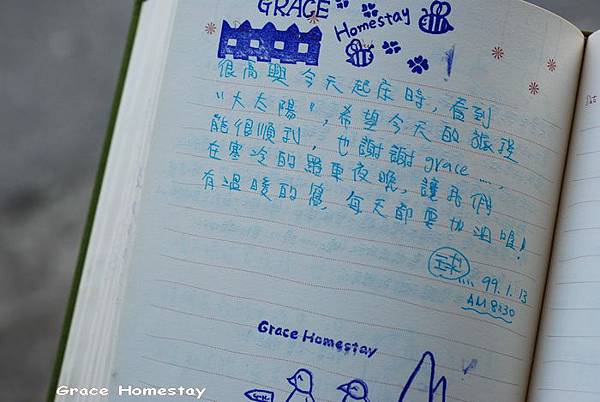 GRACE
Homestay
很高興今天起床時，看到
"大太陽"，希望今天的旅程
能很順利，也謝謝grace……，
在寒冷的羅東夜晚，讓我們
有溫暖的窩，每天都要加油哦！
99.1.13
AM8:30
Grace Homestay
Grace Homestay